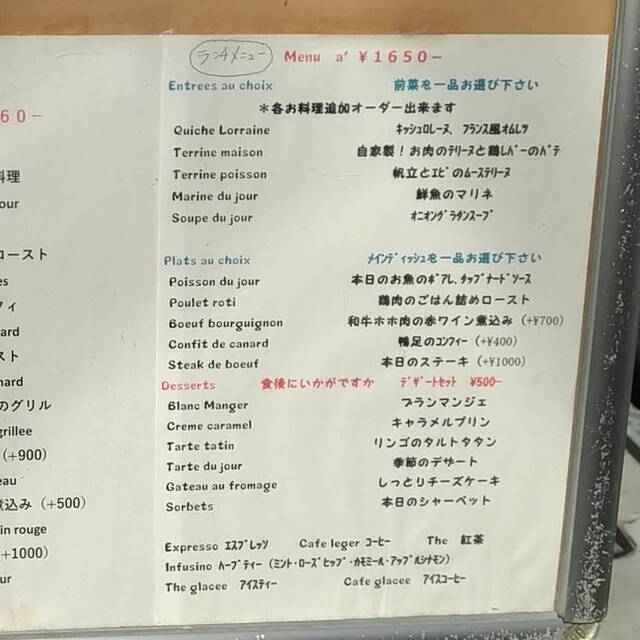 60-
料理
our
ロースト
es
フィ
ard
スト
nard
のグリル
grillee
(+900)
eau
煮込み (+500)
in rouge
(+1000)
our
ランチメニュー Menu a' ¥1650-
Entrees au choix 前菜を一品お選び下さい
＊各お料理追加オーダー出来ます
Quiche Lorraine ｷｯｼｭﾛﾚｰﾇ、ﾌﾗﾝｽ風ｵﾑﾚﾂ
Terrine maison 自家製！お肉のﾃﾘｰﾇと鶏ﾚﾊﾞｰのﾊﾟﾃ
Terrine poisson 帆立とｴﾋﾞのﾑｰｽﾃﾘｰﾇ
Marine du jour 鮮魚のマリネ
Soupe du jour ｵﾆｵﾝｸﾞﾗﾀﾝｽｰﾌﾟ
Plats au choix ﾒｲﾝﾃﾞｨｯｼｭを一品お選び下さい
Poisson du jour 本日のお魚のﾎﾟｱﾚ､ﾀｯﾌﾟﾅｰﾄﾞｿｰｽ
Poulet roti 鶏肉のごはん詰めロースト
Boeuf bourguignon 和牛ホホ肉の赤ワイン煮込み (+¥700)
Confit de canard 鴨足のｺﾝﾌｨｰ (+¥400)
Steak de boeuf 本日のステーキ (+¥1000)
Desserts 食後にいかがですか ﾃﾞｻﾞｰﾄｾｯﾄ ¥500-
Blanc Manger ブランマンジェ
Creme caramel キャラメルプリン
Tarte tatin リンゴのタルトタタン
Tarte du jour 季節のデザート
Gateau au fromage しっとりチーズケーキ
Sorbets 本日のシャーベット
Expresso ｴｽﾌﾟﾚｯｿ Cafe leger ｺｰﾋｰ The 紅茶
Infusino ﾊｰﾌﾞﾃｨｰ (ミント・ローズヒップ・カモミール・アップルシナモン)
The glacee ｱｲｽﾃｨｰ Cafe glacee ｱｲｽｺｰﾋｰ